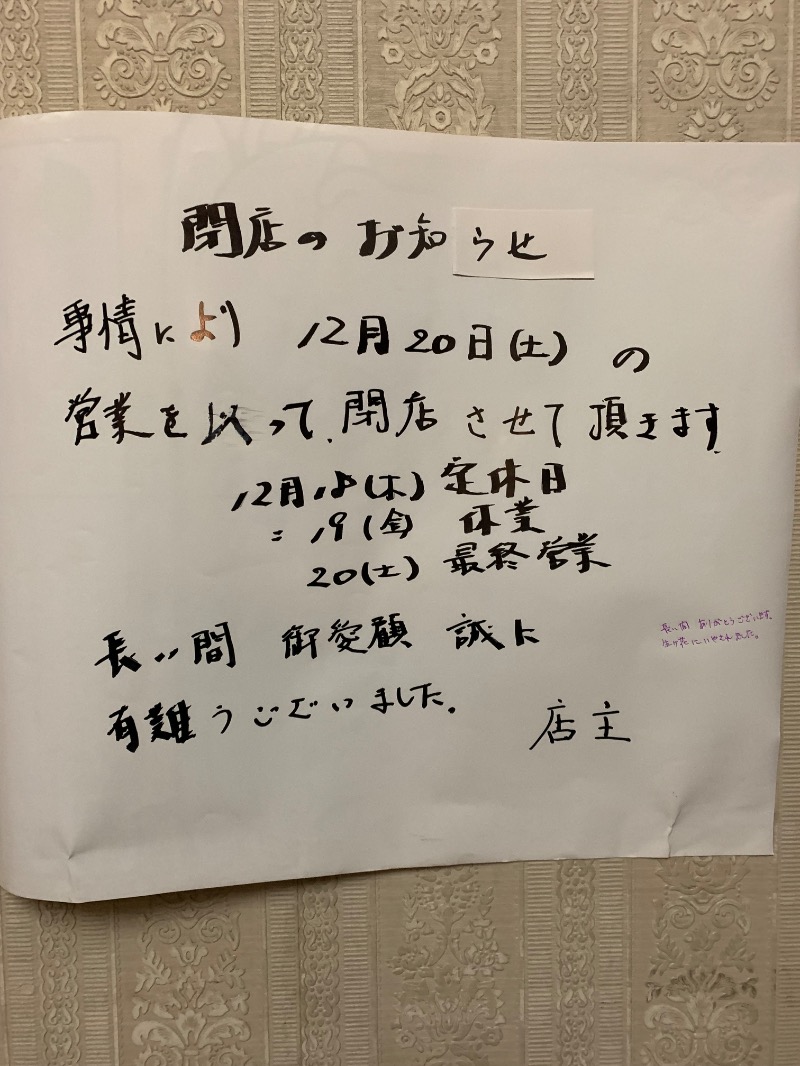 閉店のお知らせ
事情により 12月20日(土)の
営業を以って、閉店させて頂きます
12月18(木) 定休日
〃 19(金) 休業
20(土) 最終営業
長い間 御愛顧 誠に
有難うございました。
店主
長い間 ありがとうございます。
生け花にいやされました。